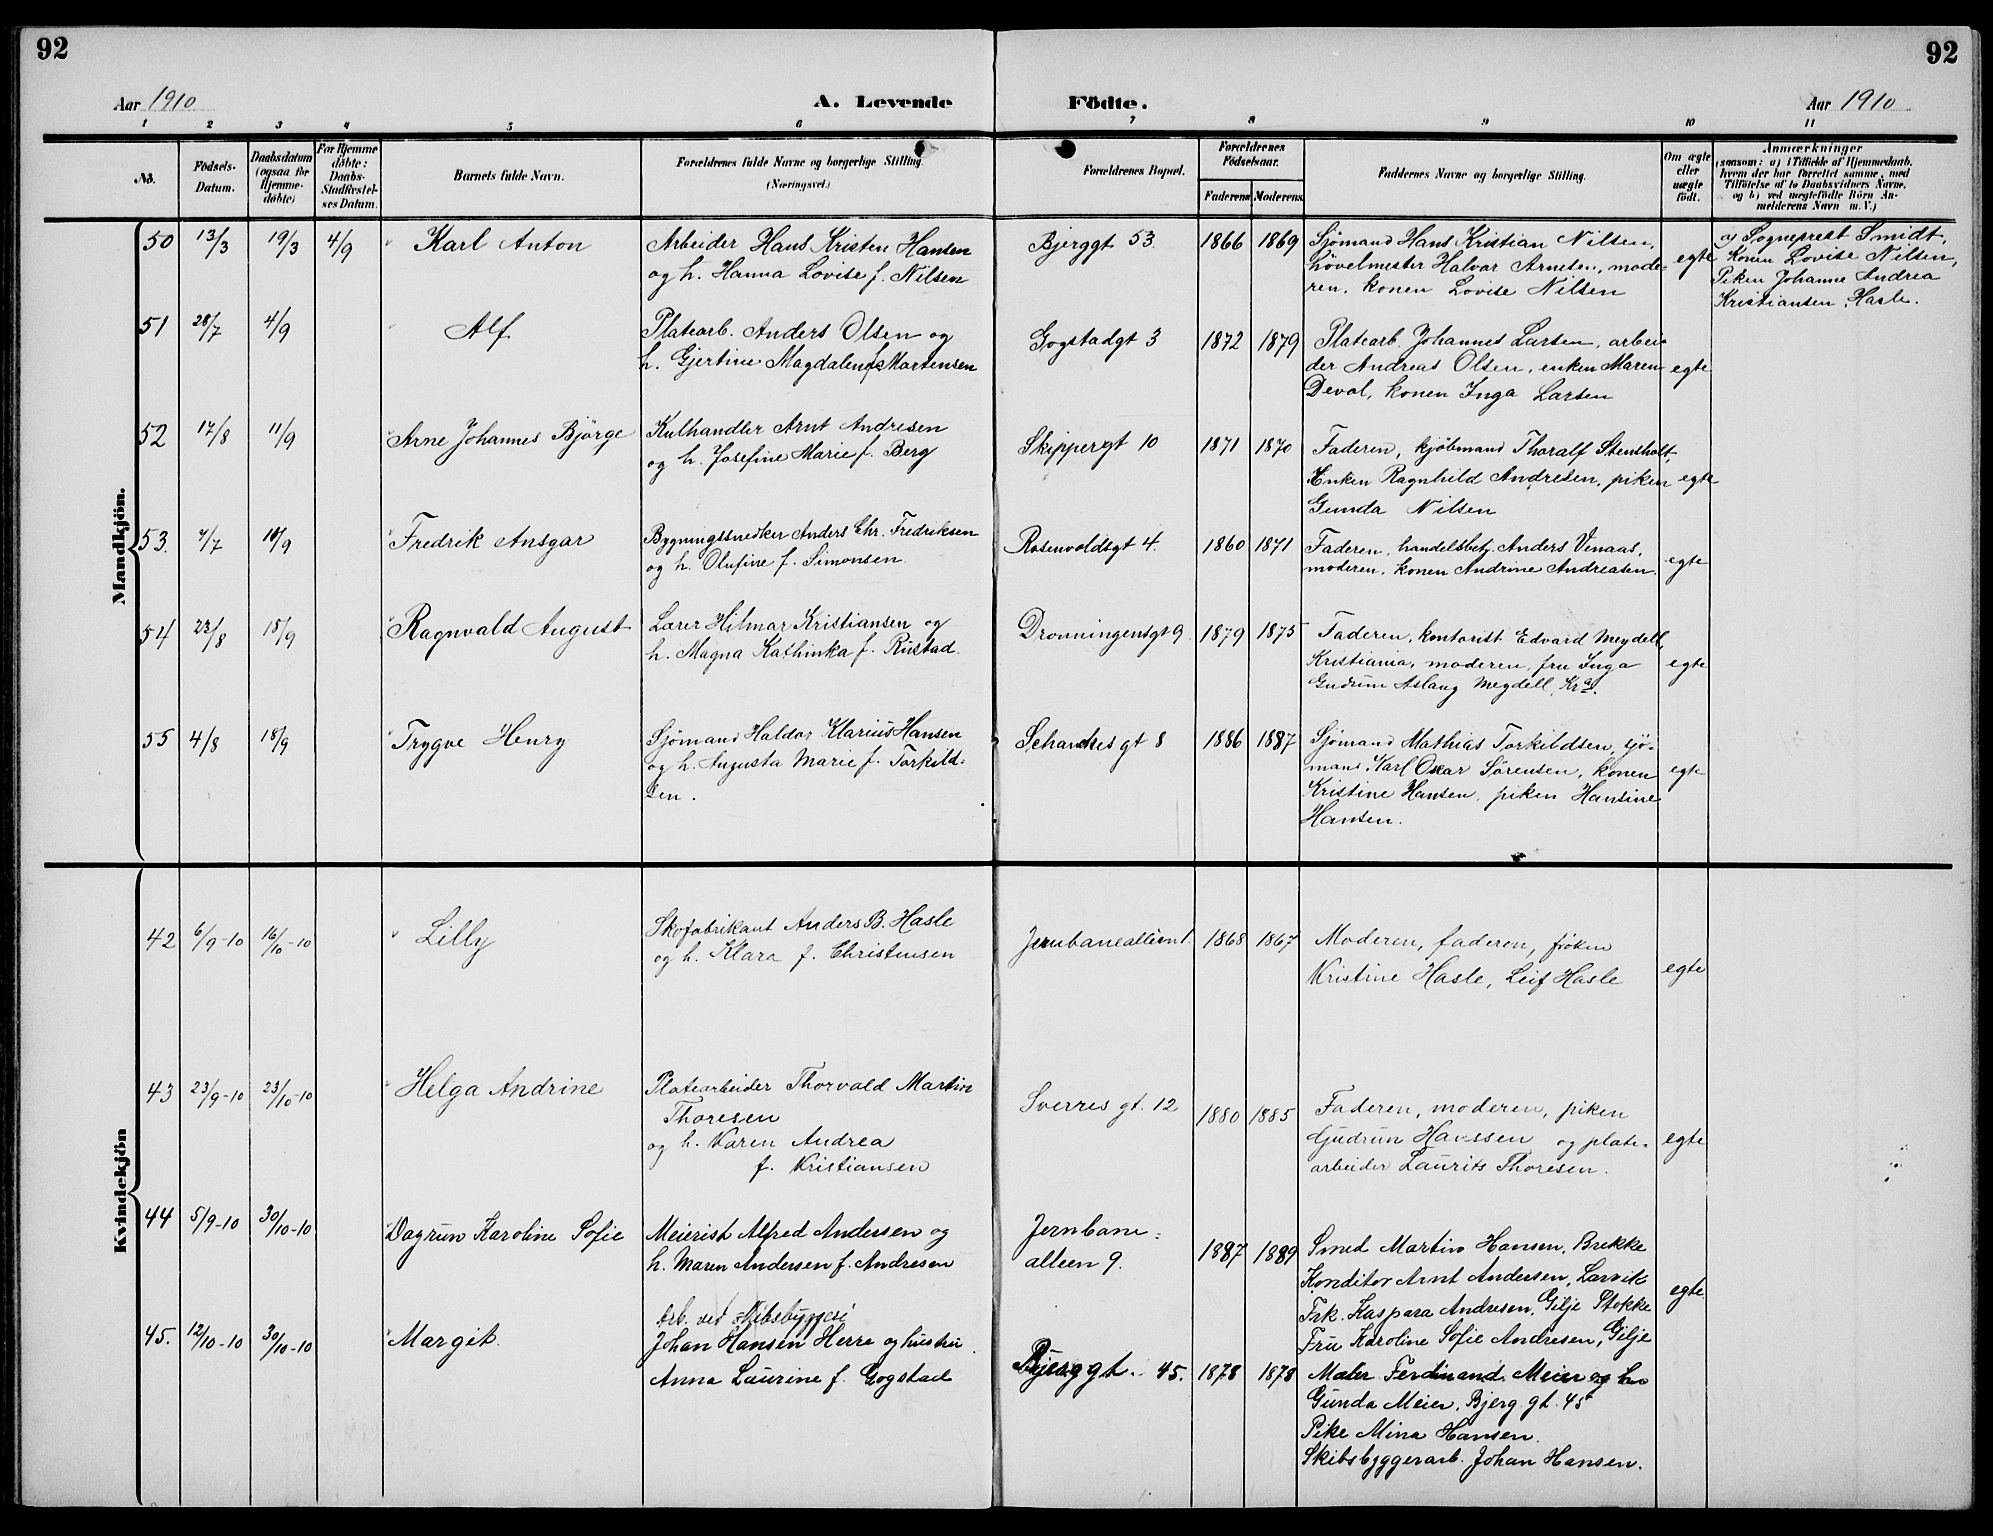 92
92
Aar 1910
A. Levende
Födte.
Aar 1910
1 2 3 4 5 6 7 8 9 10 11
No.
Födsels-
Datum.
Daabsdatum
(ogsaa for
Hjemme-
döbte)
For Hjemme
döbte:
Daabs-
Stadfæstel-
ses Datum.
Barnets fulde Navn.
Forældrenes fulde Navne og borgerlige Stilling.
(Næringsvei.)
Forældrenes Bopæl.
Forældrenes
Födselsaar.
Faderens
Moderens
Faddernes Navne og borgerlige Stilling.
Om ægte
eller
uægte
födt.
Anmærkninger
(saasom: a) i Tilfælde af Hjemmedaab.
hvem der har forrettet samme, med
Tilföielse af to Daabsvidners Navne.
og b) ved uægtefödte Börn An-
melderens Navn m. V.)
Mandkjön.
50 13/3 19/3 4/9 Karl Anton
Arbeider Hans Kristen Hansen
og h. Hanna Lovise f. Nilsen
Bjerggt 53. 1866 1869
Sjømand Hans Kristian Nilsen,
høvelmester Halvor Arnesen, mode-
ren, konen Lovise Nilsen
egte
a) Sogneprest Smidt,
Konen Lovise Nilsen,
Piken Johanne Andrea
Kristiansen, Hasle.
51 28/7 4/9 Alf
Platearb. Anders Olsen og
h. Gjertine Magdalene f. Mortensen
Gogstadgt 3 1872 1879
Platearb. Johannes Larsen, arbei-
der Andreas Olsen, enken Maren
Devol, konen Inga Larsen
egte
52 17/8 11/9 Arne Johannes Bjørge
Kulhandler Arnt Andresen
og h. Josefine Marie f. Berg
Skippergt 10 1871 1870
Faderen, kjøbmand Thoralf Stensholt,
Enken Ragnhild Andresen, piken
Gunda Nilsen
egte
53. 4/7 18/9 Fredrik Ansgar
Bygningssnedker Anders Chr. Fredriksen
og h. Olufine f. Simonsen
Rosenvoldsgt 4. 1860 1871
Faderen, handelsbetj. Anders Venaas,
moderen, konen Andrine Andreasen.
egte
54 23/8 15/9 Ragnvald August
Lærer Hilmar Kristiansen og
h. Magna Kathinka f. Rustad.
Dronningensgt 9 1879 1875
Faderen, kontorist Edvard Meydell,
Kristiania, moderen, fru Inga
Gudrun Aslaug Meydell, Kra.
egte
55 4/8 18/9 Trygve Henry
Sjømand Haldor Klarius Hansen
og h. Augusta Marie f. Torkild-
sen.
Schanches gt 8 1886 1887
Sjømand Mathias Torkildsen, sjø-
mand Karl Oscar Sørensen, konen
Kristine Hansen, piken Hansine
Hansen.
egte
Kvindekjön
42 6/9-10 16/10-10 Lilly
Skofabrikant Anders B. Hasle
og h. Klara f. Christensen
Jernbanealleen 1. 1868 1867
Moderen, faderen, frøken
Kristine Hasle, Leif Hasle
egte
43 23/9-10 23/10-10 Helga Andrine
Platearbeider Thorvald Martin
Thoresen
og h. Karen Andrea
f. Kristiansen
Sverres gt. 12 1880 1885
Faderen, moderen, piken
Gudrun Hanssen og plate-
arbeider Laurits Thoresen.
egte
44 5/9-10 30/10-10 Dagrun Karoline Sofie
Meierist Alfred Andersen og
h. Maren Andersen f. Andresen
Jernbane-
alleen 9. 1887 1889
Smed Martin Hansen, Brekke
Konditor Arnt Andersen, Larvik
Frk. Kaspara Andresen, Gilje Stokke
Fru Karoline Sofie Andresen, Gilje
egte
45. 12/10-10 30/10-10 Margit.
Arb. ved Skibsbyggeri
Johan Hansen Herre og hustru
Anna Laurine f. Gogstad
Bjerggt. 45. 1878 1878
Maler Ferdinand Meier og hu
Gunda Meier, Bjerg gt. 45
Pike Mina Hansen.
Skibsbyggerarb. Johan Hansen.